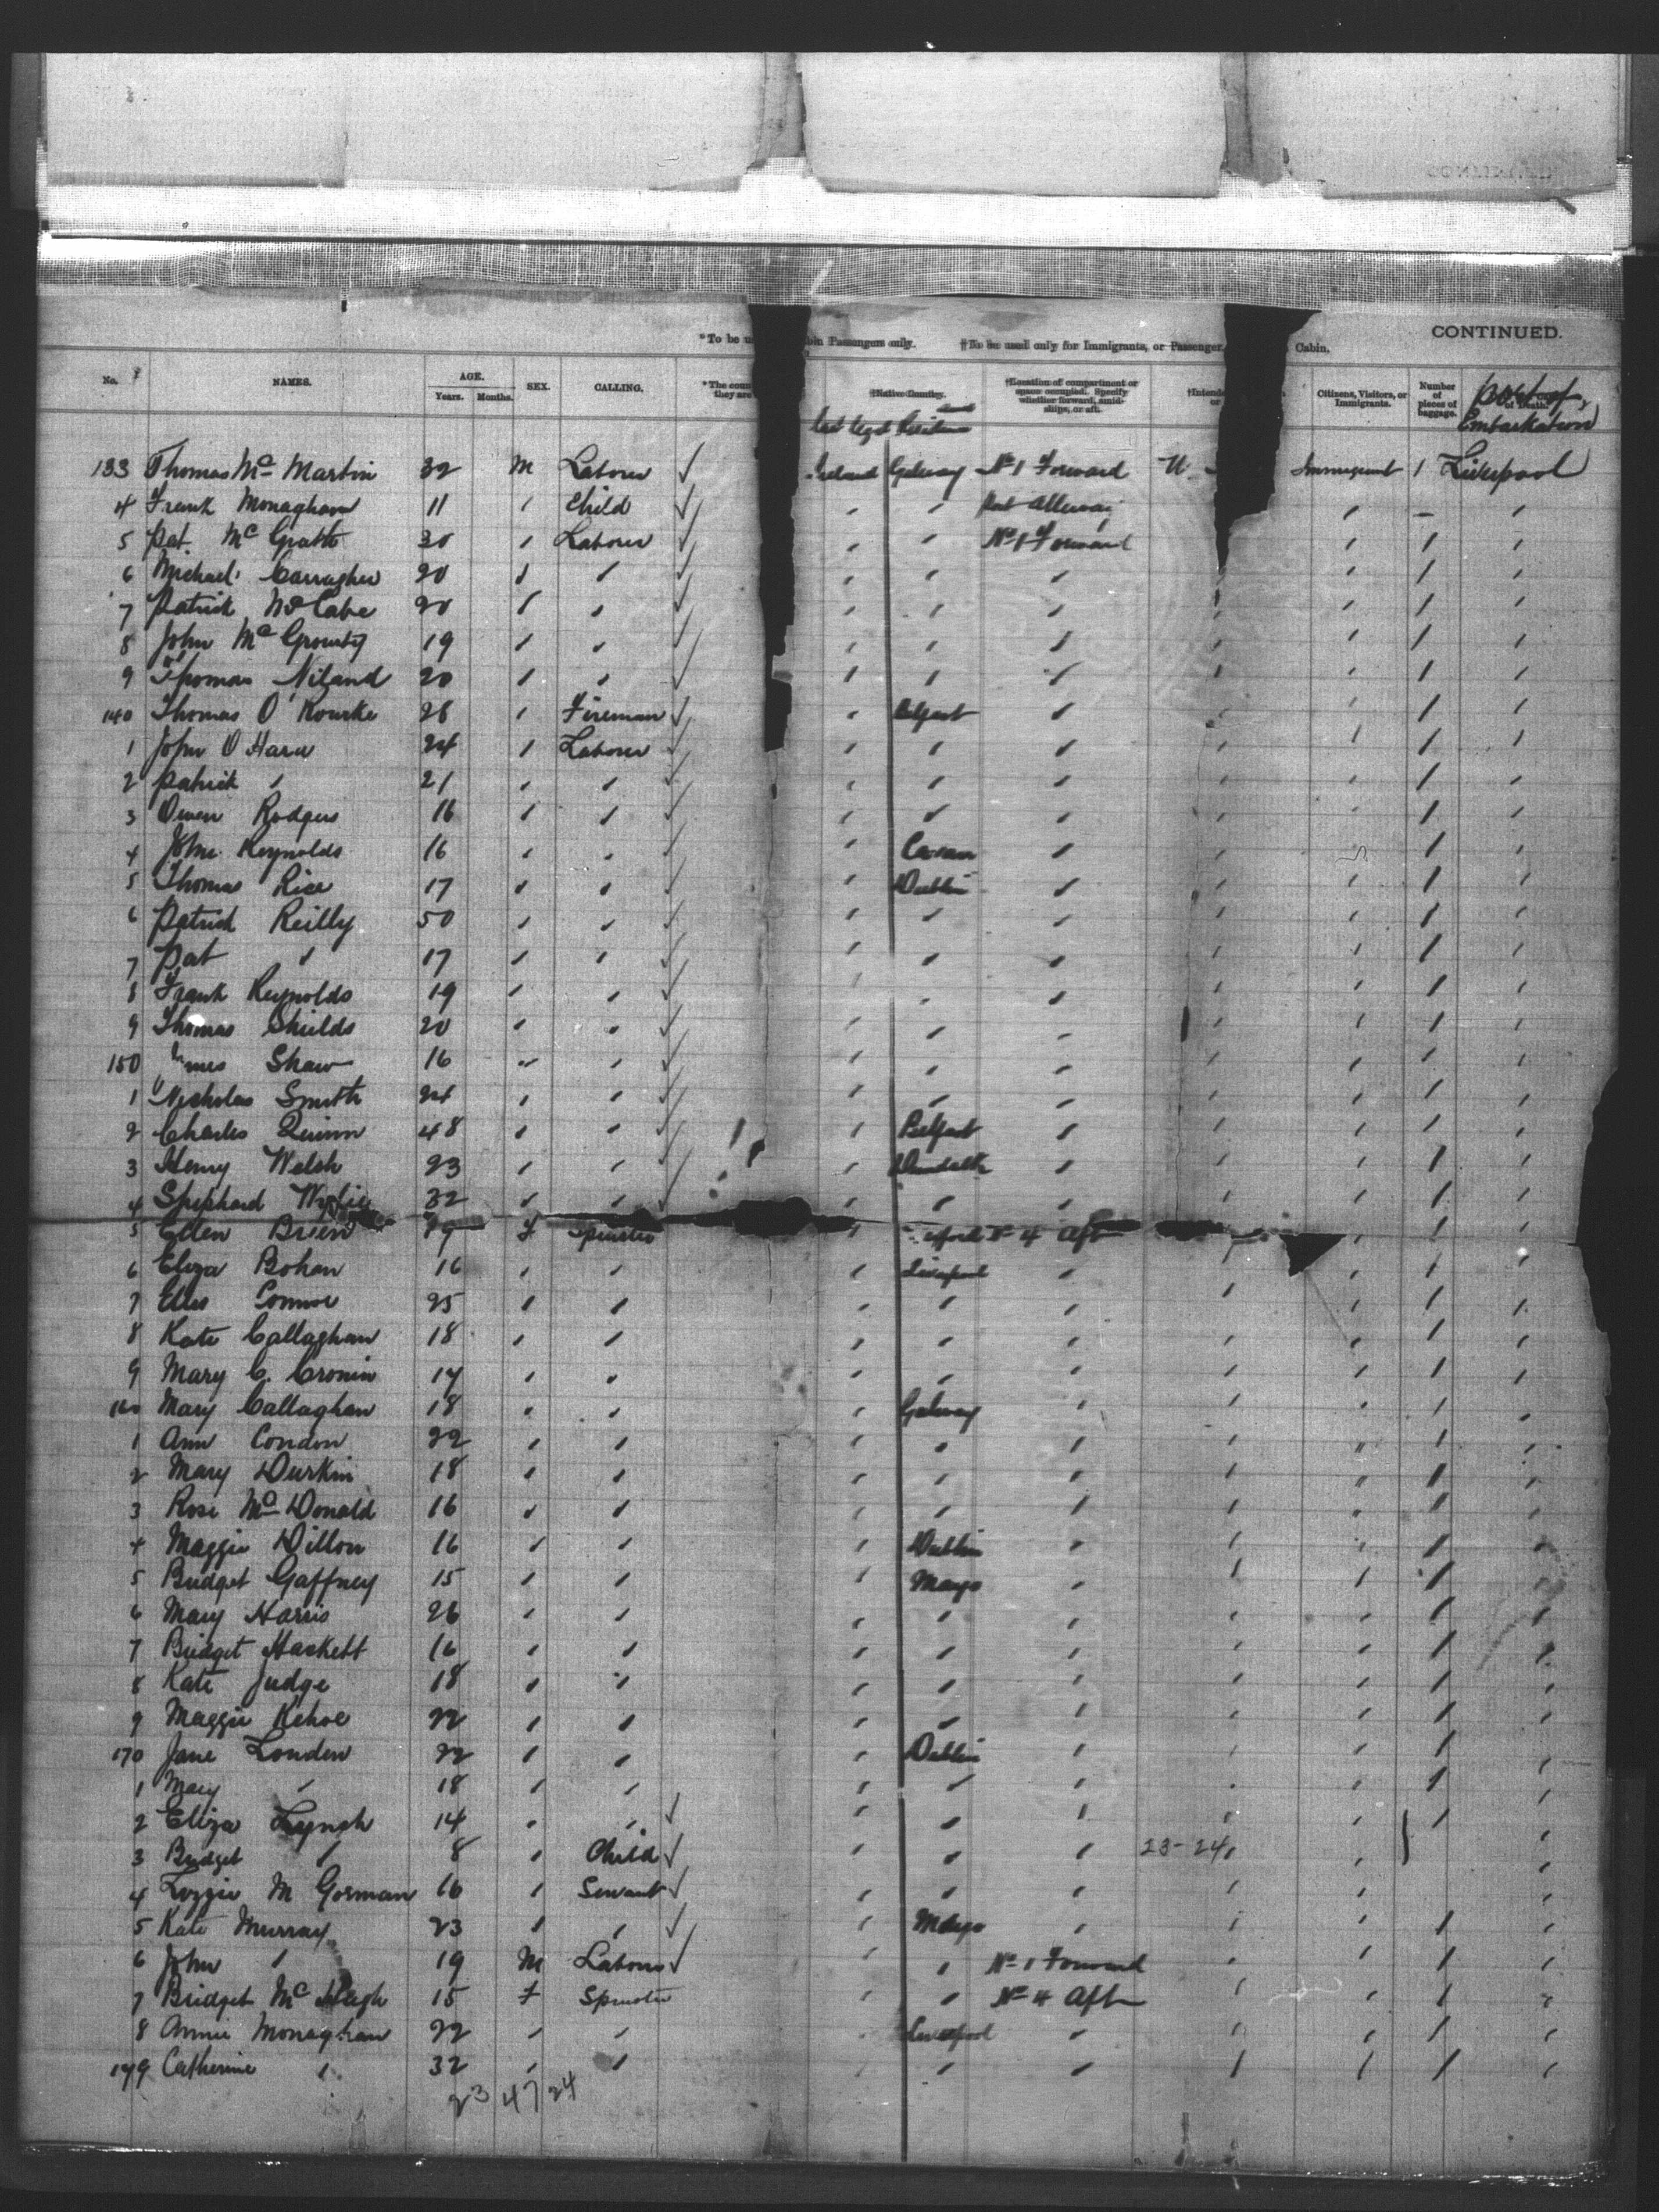 CONTINUED.
*To be u bin Passengers only. †To be used only for Immigrants, or Passenger Cabin.
No. NAMES. AGE. Years. Months. SEX. CALLING. *The coun they are †Native Country. †Location of compartment or space occupied. Specify whether forward, amidships, or aft. †Intende or Citizens, Visitors, or Immigrants. Number of pieces of baggage. Port of Embarkation
last legal Residence
133 Thomas Mc Martin 32 M Laborer ✓ Ireland Galway No 1 Forward U. Immigrant 1 Liverpool
4 Frank Monaghan 11 " Child ✓ " " Port Alleway " – "
5 Pat. Mc Grath 30 " Laborer ✓ " " No 1 Forward " 1 "
6 Michael Carragher 20 " " ✓ " " " " " 1 "
7 Patrick Mc Cabe 20 " " ✓ " " " " " 1 "
8 John Mc Grourty 19 " " ✓ " " " " " 1 "
9 Thomas Niland 20 " " ✓ " " " " " 1 "
140 Thomas O'Rourke 28 " Fireman ✓ " Belfast " " " 1 "
1 John O'Hara 24 " Laborer ✓ " " " " " 1 "
2 Patrick " 21 " " ✓ " " " " " 1 "
3 Owen Rodgers 16 " " ✓ " " " " " 1 "
4 John Reynolds 16 " " ✓ " Cavan " " " 1 "
5 Thomas Rice 17 " " ✓ " Dublin " " " 1 "
6 Patrick Reilly 50 " " ✓ " " " " " 1 "
7 Pat " 17 " " ✓ " " " " " 1 "
8 Frank Reynolds 19 " " ✓ " " " " " 1 "
9 Thomas Shields 20 " " ✓ " " " " " 1 "
150 James Shaw 16 " " ✓ " " " " " 1 "
1 Nicholas Smith 24 " " ✓ " " " " " 1 "
2 Charles Quinn 48 " " ✓ " Belfast " " " 1 "
3 Henry Welsh 23 " " ✓ " Dundalk " " " 1 "
4 Shephard Wylie 32 " " ✓ " " " " " 1 "
5 Ellen Brien F Spinster " No 4 Aft " 1 "
6 Eliza Bohan 16 " " " Liverpool " " " 1 "
7 Ellen 25 " " " " " " " 1 "
8 Kate Callaghan 18 " " " " " " " 1 "
9 Mary C. Cronin 17 " " " " " " " 1 "
160 Mary Callaghan 18 " " " Galway " " " 1 "
1 Ann Condon 22 " " " " " " " 1 "
2 Mary Durkin 18 " " " " " " " 1 "
3 Rose Mc Donald 16 " " " " " " " 1 "
4 Maggie Dillon 16 " " " Dublin " " " 1 "
5 Bridget Gaffney 15 " " " Mayo " " " 1 "
6 Mary Harris 26 " " " " " " " 1 "
7 Bridget Hackett 16 " " " " " " " 1 "
8 Kate Judge 18 " " " " " " " 1 "
9 Maggie Kehoe 22 " " " " " " " 1 "
170 Jane Louden 22 " " " Dublin " " " 1 "
1 Mary " 18 " " " " " " " 1 "
2 Eliza Lynch 14 " " ✓ " " " " " 1 "
3 Bridget " 8 " Child ✓ " " " 23-24 " " "
4 Lizzie M Gorman 16 " Servant ✓ " " " " " "
5 Kate Murray 23 " " ✓ " Mayo " " " 1 "
6 John " 19 M Laborer ✓ " " No 1 Forward " " 1 "
7 Bridget Mc Hugh 15 F Spinster " " No 4 Aft " " 1 "
8 Annie Monaghan 22 " " " Liverpool " " " 1 "
179 Catherine " 32 " " " " " " " 1 "
23 47 24